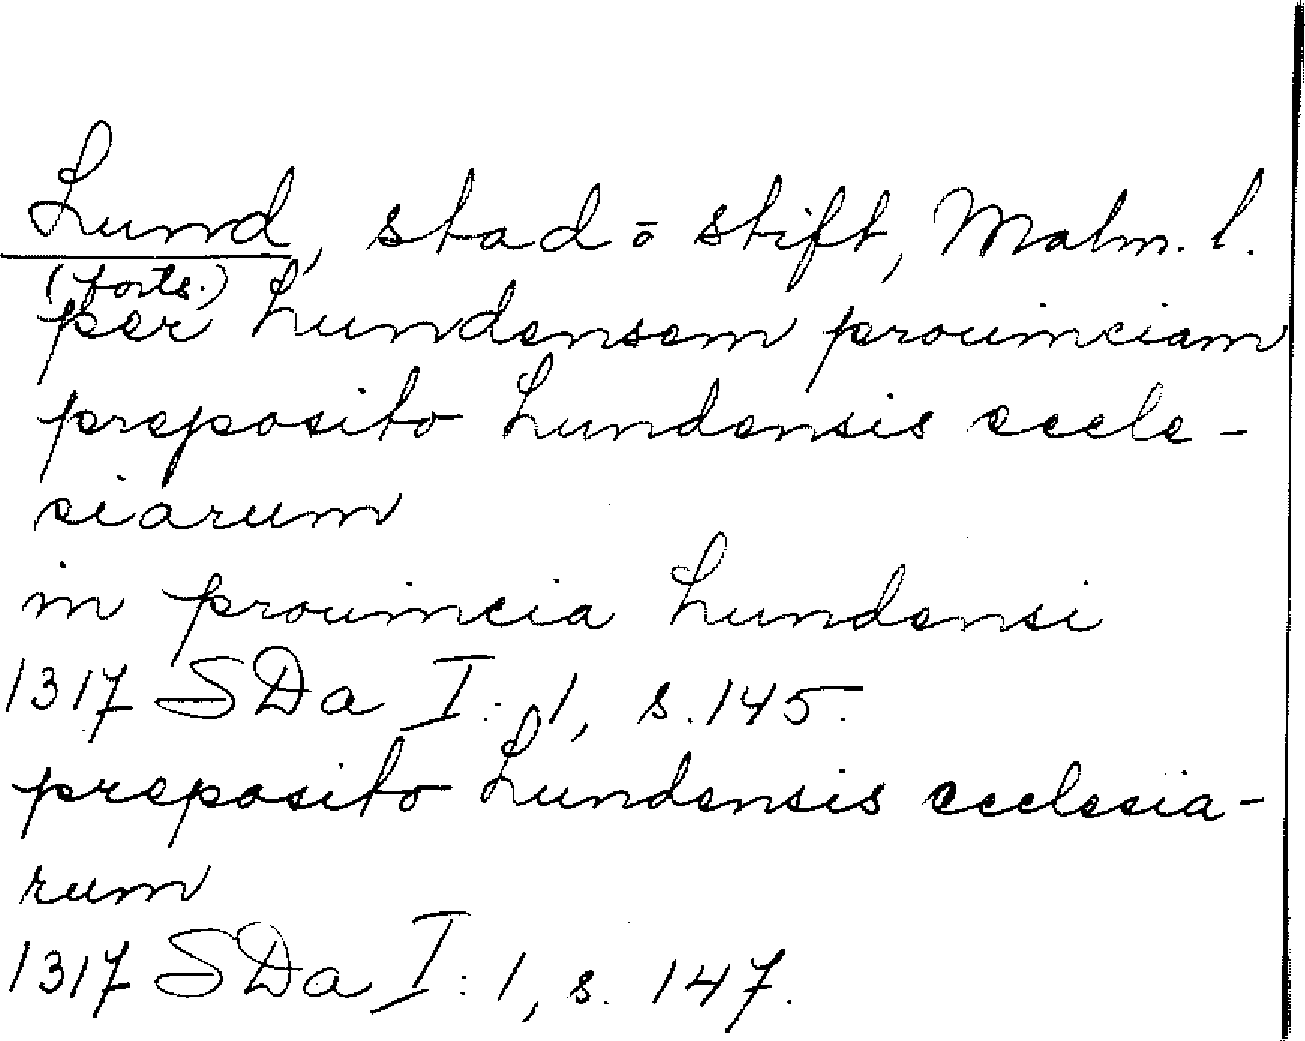 Lund, stad o stift, Malm. l.
(forts.)
per Lundensem prouinciam
preposito Lundensis eccle-
siarum
in prouincia Lundensi
1317 SDa I:1, s. 145.
preposito Lundensis ecclesia-
rum
1317 SDa I:1, s. 147.